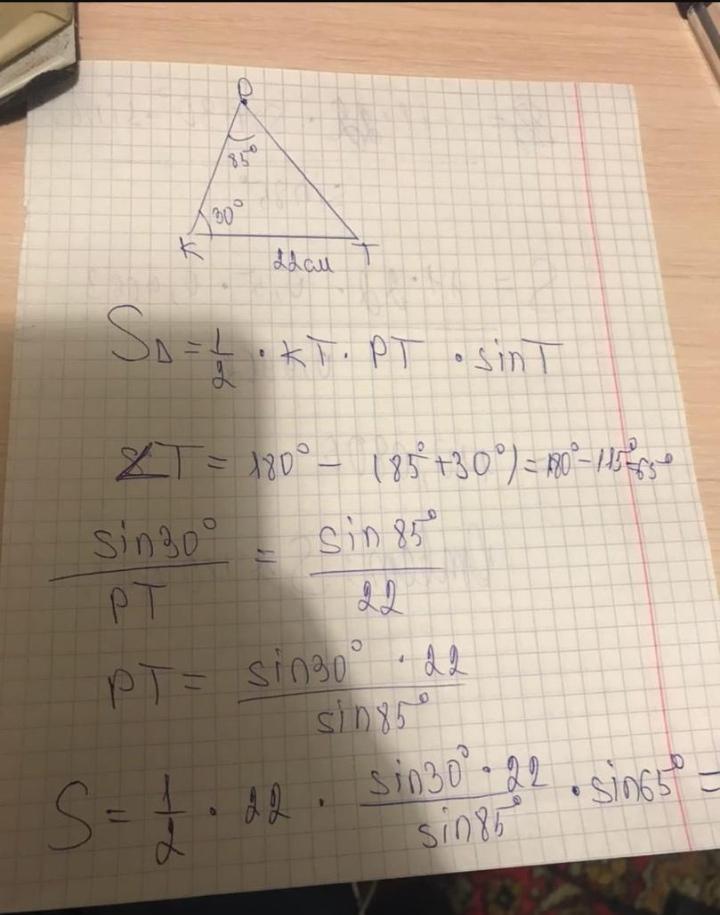 P
85°
30°
K
22см
T
S△ = 1/2 · KT · PT · sinT
∠T = 180° − (85° + 30°) = 180° − 115° = 65°
sin30° / PT = sin85° / 22
PT = sin30° · 22 / sin85°
S = 1/2 · 22 · sin30° · 22 / sin85° · sin65° =